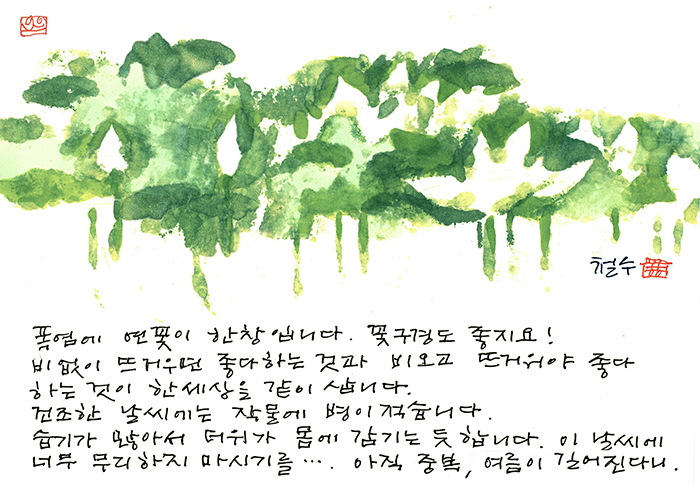 철수
폭염에 연꽃이 한창입니다. 꽃구경도 좋지요!
비없이 뜨거우면 좋다하는 것과 비오고 뜨거워야 좋다
하는 것이 한세상을 같이 삽니다.
건조한 날씨에는 작물에 병이 적습니다.
습기가 많아서 더위가 몸에 감기는 듯 합니다. 이 날씨에
너무 무리하지 마시기를…. 아직 중복, 여름이 길어진다니.